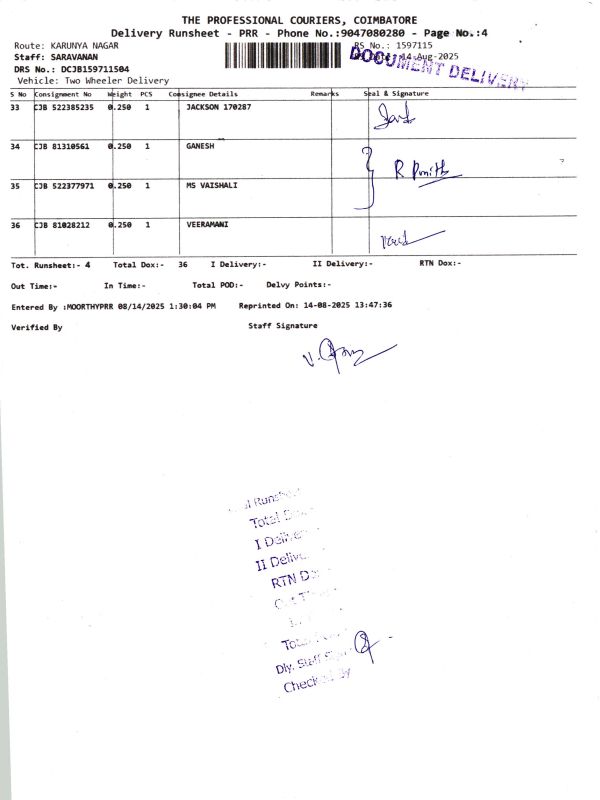 THE PROFESSIONAL COURIERS, COIMBATORE
Delivery Runsheet - PRR - Phone No.:9047080280 - Page No.:4
Route: KARUNYA NAGAR RS No.: 1597115
Staff: SARAVANAN 14-Aug-2025
DOCUMENT DELIVERY
DRS No.: DCJB159711504
Vehicle: Two Wheeler Delivery
S No Consignment No Weight PCS Consignee Details Remarks Seal & Signature
33 CJB 522385235 0.250 1 JACKSON 170287
34 CJB 81310561 0.250 1 GANESH
R
35 CJB 522377971 0.250 1 MS VAISHALI
36 CJB 81028212 0.250 1 VEERAMANI
Tot. Runsheet:- 4 Total Dox:- 36 I Delivery:- II Delivery:- RTN Dox:-
Out Time:- In Time:- Total POD:- Delvy Points:-
Entered By :MOORTHYPRR 08/14/2025 1:30:04 PM Reprinted On: 14-08-2025 13:47:36
Verified By Staff Signature
Total
I
II
RTN
Dly. Staff
By